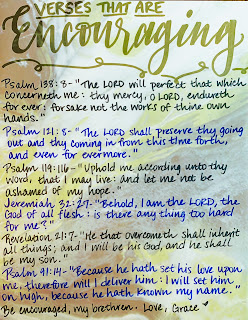 VERSES THAT ARE
Encouraging
Psalm 138:8- "The LORD will perfect that which
concerneth me: thy mercy, O LORD, endureth
for ever: forsake not the works of thine own
hands."
Psalm 121:8- "The LORD shall preserve thy going
out and thy coming in from this time forth,
and even for evermore."
Psalm 119:116- "Uphold me according unto thy
word, that I may live: and let me not be
ashamed of my hope."
Jeremiah 32:27- "Behold, I am the LORD, the
God of all flesh: is there any thing too hard
for me?"
Revelation 21:7- "He that overcometh shall inherit
all things; and I will be his God, and he shall
be my son."
Psalm 91:14- "Because he hath set his love upon
me, therefore will I deliver him: I will set him
on high, because he hath known my name."
Be encouraged, my brethren. Love, Grace